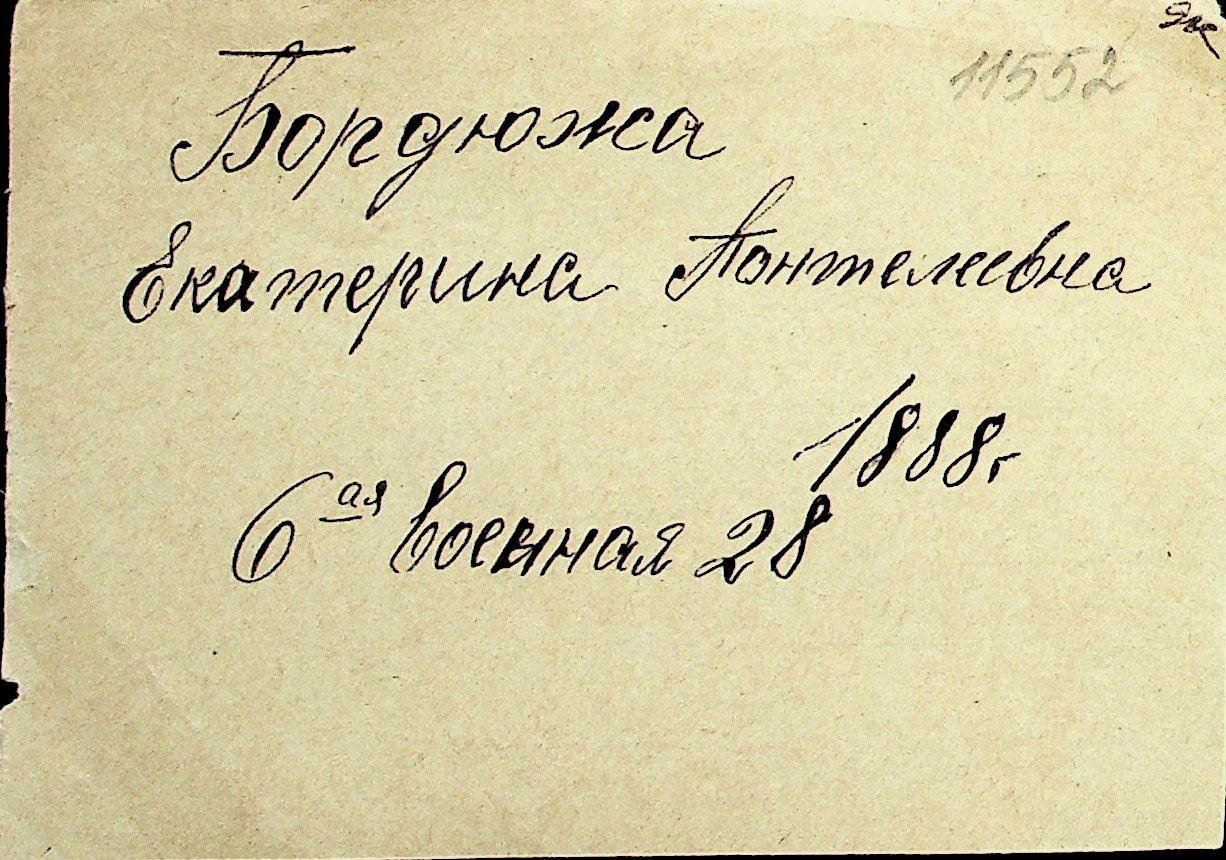 11552
Бордюжа
Екатерина Понтелеевна
1888г
6ая Военная 28